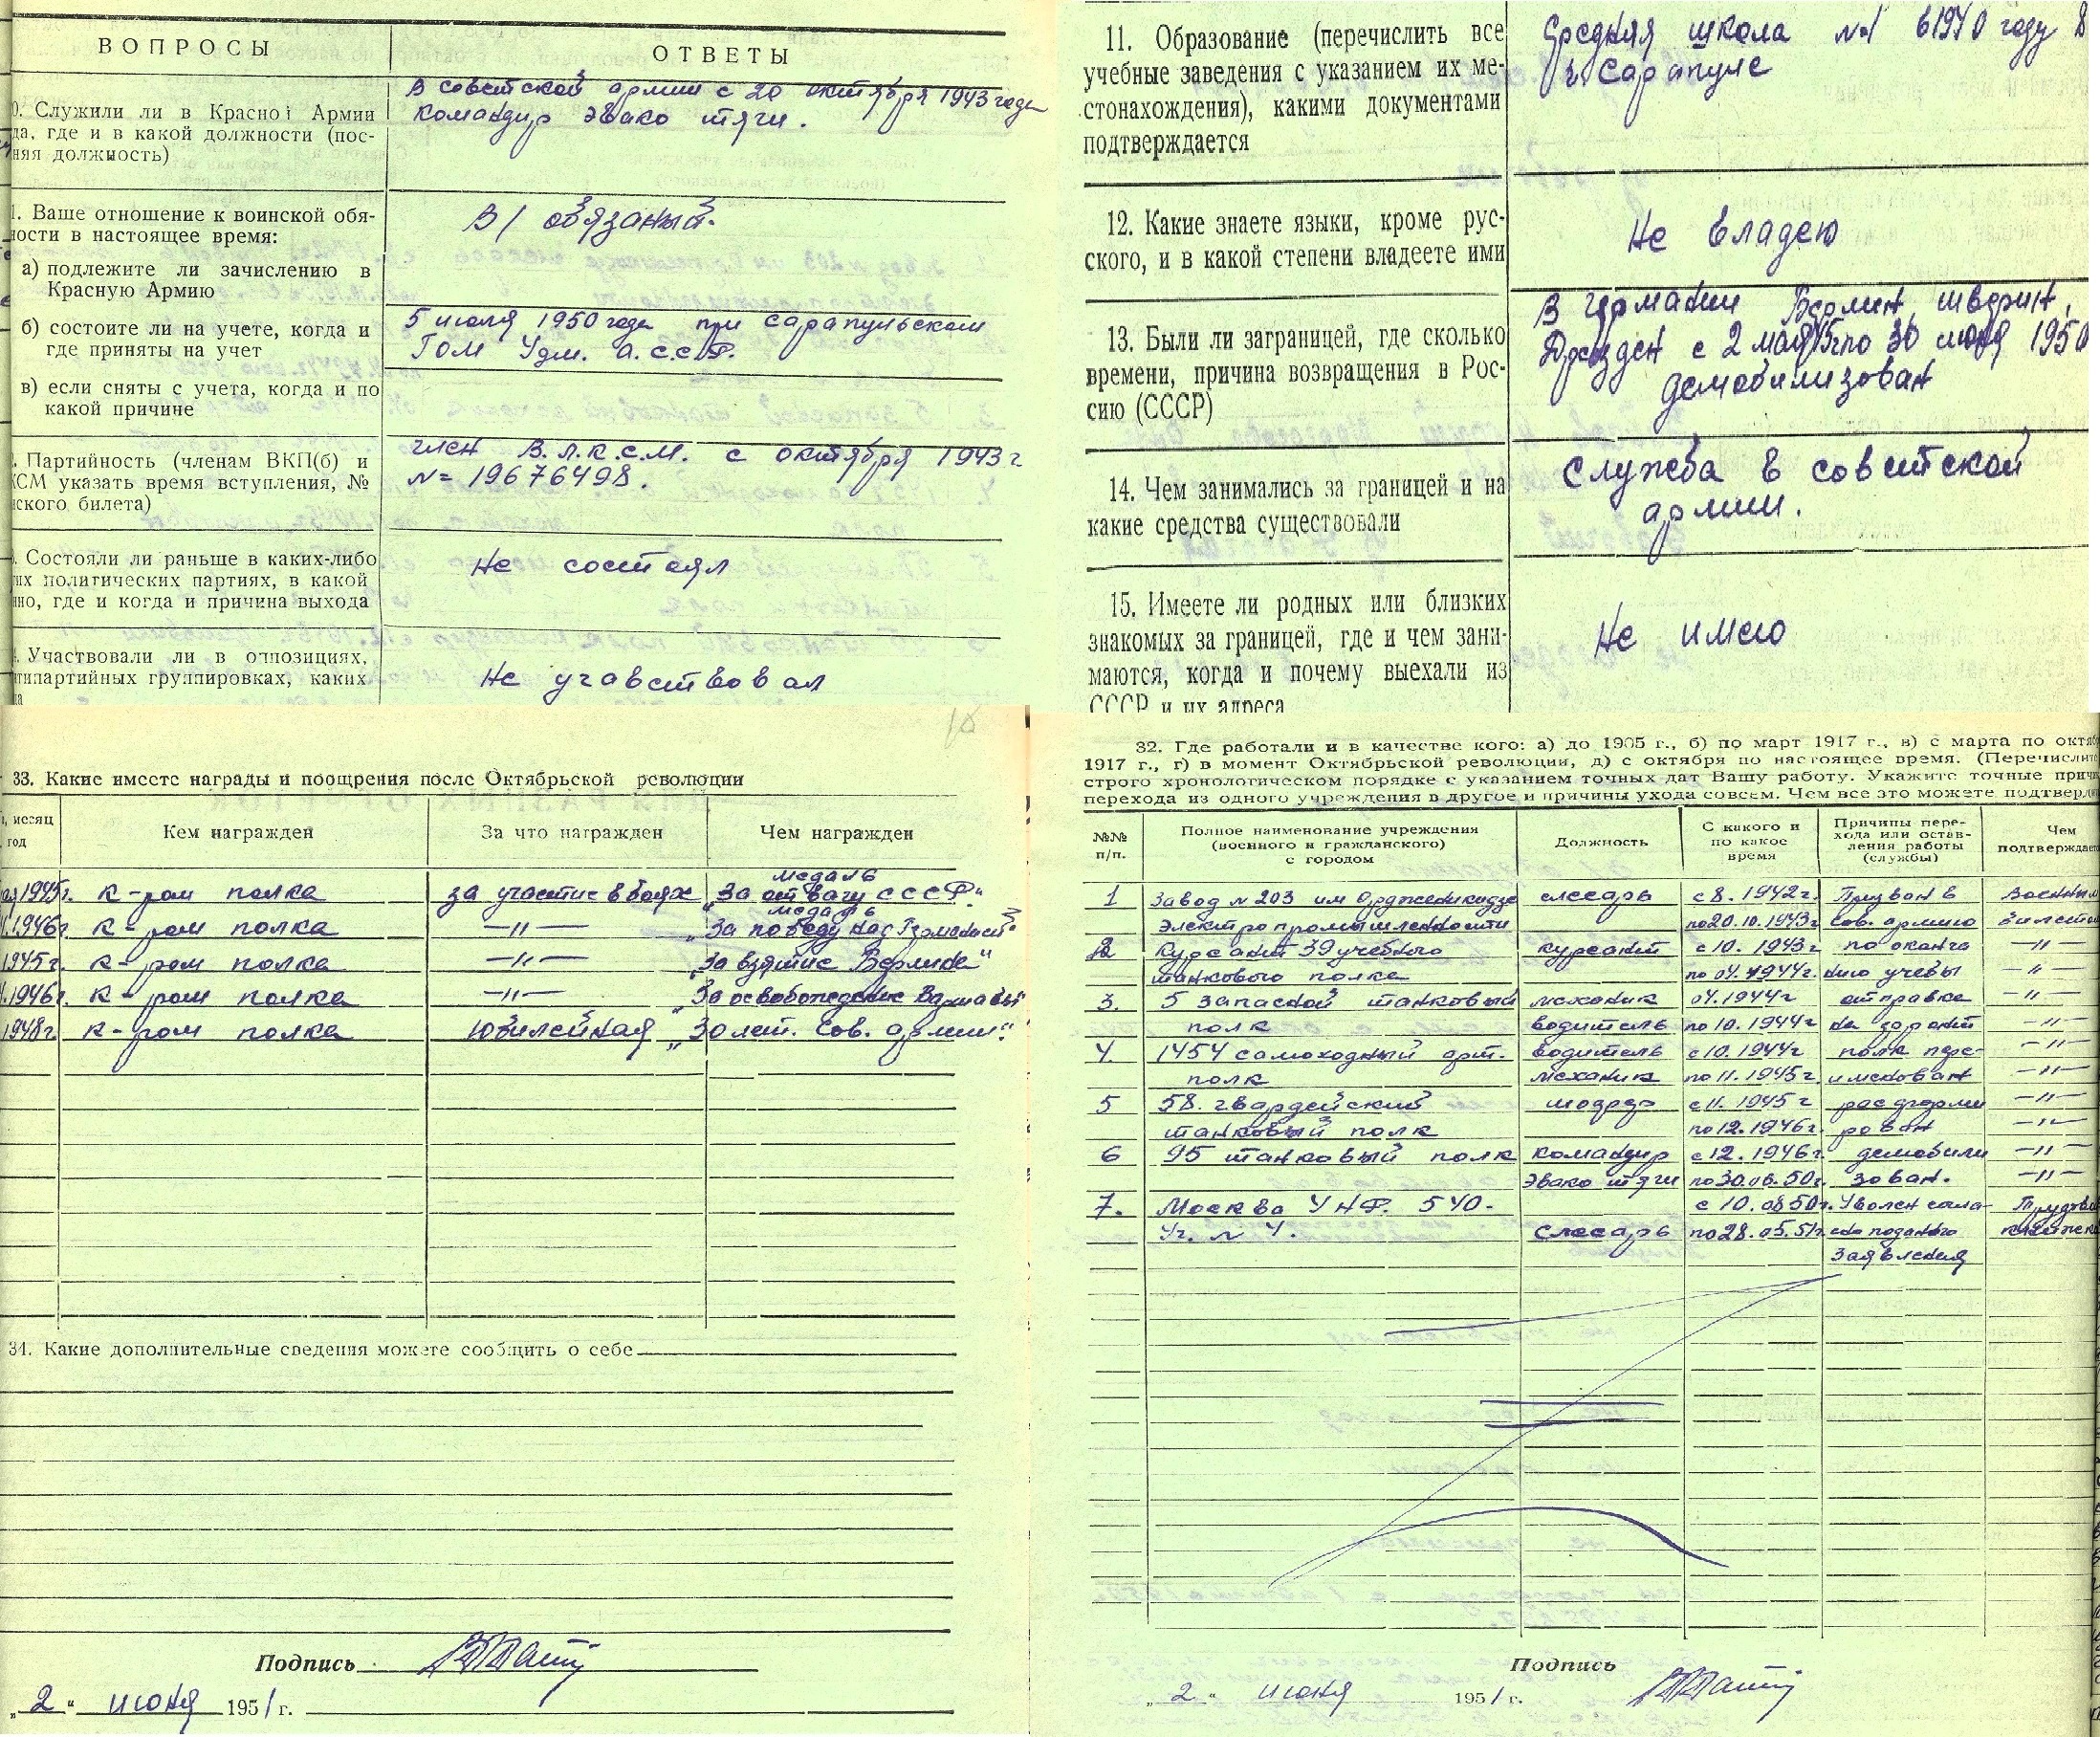 ВОПРОСЫ
ОТВЕТЫ
0. Служили ли в Красной Армии
да, где и в какой должности (пос-
няя должность)
В советской армии с 20 октября 1943 года
командир эвако тяги.
1. Ваше отношение к воинской обя-
ности в настоящее время:
В/ обязаный.
а) подлежите ли зачислению в
Красную Армию
б) состоите ли на учете, когда и
где приняты на учет
5 июля 1950 года при Сарапульском
ГОМ Удм. А.С.С.Р.
в) если сняты с учета, когда и по
какой причине
. Партийность (членам ВКП(б) и
КСМ указать время вступления, №
ского билета)
член В.Л.К.С.М. с октября 1943 г
N= 19676498.
. Состояли ли раньше в каких-либо
гих политических партиях, в какой
нно, где и когда и причина выхода
Не состоял
. Участвовали ли в оппозициях,
нтипартийных группировках, каких
да
Не учавствовал
11. Образование (перечислить все
учебные заведения с указанием их ме-
стонахождения), какими документами
подтверждается
Средняя школа №1 в 1940 году в
г. Сарапуле
12. Какие знаете языки, кроме рус-
ского, и в какой степени владеете ими
Не владею
13. Были ли заграницей, где сколько
времени, причина возвращения в Рос-
сию (СССР)
В германии Берлин, шверин,
Дрезден с 2 мая 45г по 30 июня 1950
демобилизован
14. Чем занимались за границей и на
какие средства существовали
Служба в советской
армии.
15. Имеете ли родных или близких
знакомых за границей, где и чем зани-
маются, когда и почему выехали из
СССР и их адреса
Не имею
33. Какие имеете награды и поощрения после Октябрьской революции
, месяц
год
Кем награжден
За что награжден
Чем награжден
медаль
1945г. к-ром полка за участие в боях „За отвагу СССР"
медаль
1946г. к-ром полка —"— „За победу над Германией"
1945г. к-ром полка —"— „За взятие Берлина"
1946г. к-ром полка —"— „За освобождение Варшавы"
1948г. к-ром полка Юбилейная „30 лет. Сов. армии".
34. Какие дополнительные сведения можете сообщить о себе
Подпись
„2" июня 1951 г.
32. Где работали и в качестве кого: а) до 1905 г., б) по март 1917 г., в) с марта по октяб
1917 г., г) в момент Октябрьской революции, д) с октября по настоящее время. (Перечислите
строго хронологическом порядке с указанием точных дат Вашу работу. Укажите точные причи
перехода из одного учреждения в другое и причины ухода совсем. Чем все это можете подтверди
№№
п/п.
Полное наименование учреждения
(военного и гражданского)
с городом
Должность
С какого и
по какое
время
Причины пере-
хода или остав-
ления работы
(службы)
Чем
подтверждает
1 Завод №203 им Орджоникидзе слесарь с 8. 1942г. Призван в Военным
электропромышленности по 20.10.1943г Сов. армию билетом
2 Курсант 39 учебного курсант с 10. 1943г по оконча —"—
танкового полка по 04. 1944г. нию учебы —"—
3. 5 запасной танковый механик 04.1944г отправка —"—
полк водитель по 10. 1944г на фронт —"—
4. 1454 самоходный арт. водитель с 10. 1944г полк пере- —"—
полк механик по 11. 1945г. именован —"—
5 58. гвардейский с 11. 1945г расформи —"—
танковый полк по 12. 1946г. рован —"—
6 95 танковый полк командир с 12. 1946г. демобили —"—
эвако тяги по 30.06.50г. зован. —"—
7. Москва УНР. 540. с 10. 08 50г. Уволен согла- Трудовая
Уч. № 4. слесарь по 28. 05.51г. сно поданого книжка
заявления
Подпись
„2" июня 1951 г.